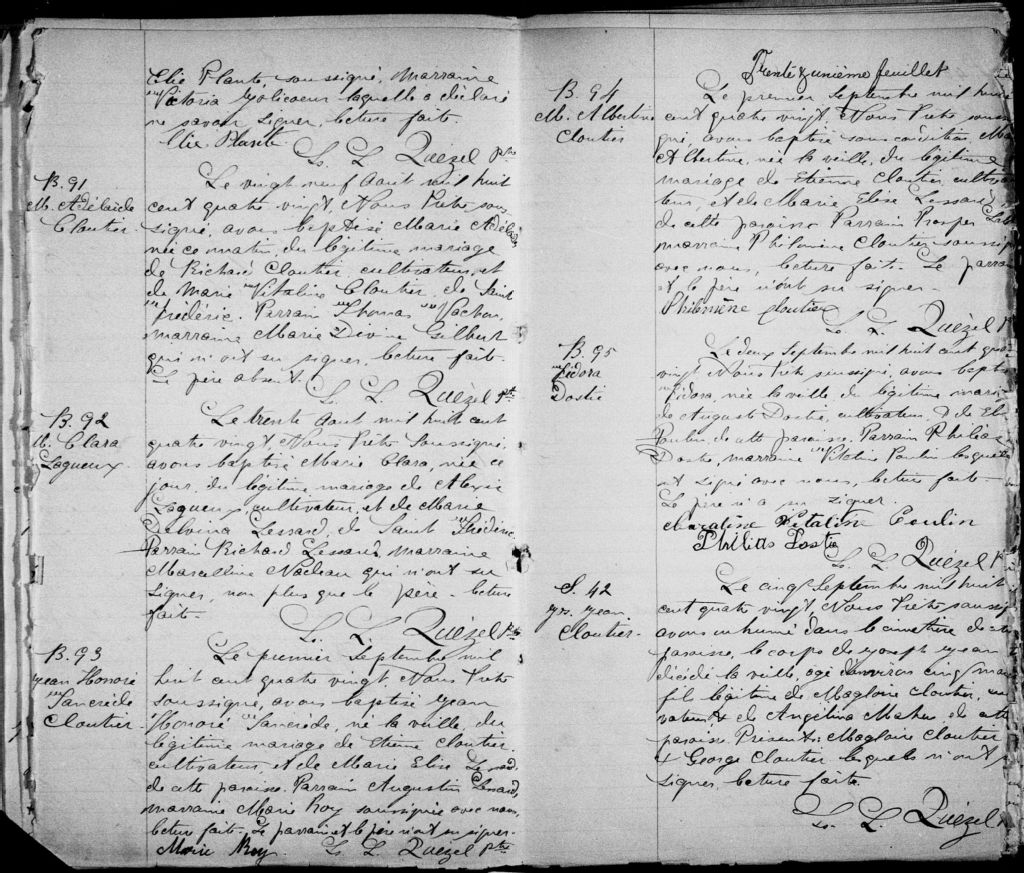 Elie Plante, soussigné, Marraine
Victoria Jolicoeur laquelle a déclaré
ne savoir signer, lecture faite.
Elie Plante
L. L. Quézel Ptre
B. 91
M. Adélaïde
Cloutier
Le vingt neuf Août mil huit
cent quatre vingt, Nous Prêtre sous-
signé, avons baptisé Marie Adélaïde
née ce matin, du légitime mariage
de Richard Cloutier, cultivateur, et
de Marie Vitaline Cloutier, de Saint
Frédéric. Parrain Thomas Vachon,
marraine Marie Divine Gilbert
qui n'ont su signer, lecture faite.
Le père absent.
L. L. Quézel Ptre
B. 92
M. Clara
Lagueux
Le trente Août mil huit cent
quatre vingt, Nous Prêtre soussigné,
avons baptisé Marie Clara, née ce
jour, du légitime mariage de Alexis
Lagueux, cultivateur, et de Marie
Delvina Lessard, de Saint Frédéric.
Parrain Richard Lessard, Marraine
Marcelline Nadeau qui n'ont su
signer, non plus que le père. lecture
faite.
L. L. Quézel Ptre
B. 93
Jean Honoré
Tancrède
Cloutier
Le premier Septembre mil
huit cent quatre vingt, Nous Prêtre
soussigné, avons baptisé Jean
Honoré Tancrède, né la veille, du
légitime mariage de Etienne Cloutier,
cultivateur, et de Marie Elise Lessard,
de cette paroisse. Parrain Augustin Lessard,
marraine Marie Roy soussignée avec nous,
lecture faite. Le parrain et le père n'ont su signer.
Marie Roy. L. L. Quézel Ptre
Trente & unième feuillet
B. 94
M. Albertine
Cloutier
Le premier Septembre mil huit
cent quatre vingt, Nous Prêtre sous-
signé, avons baptisé sous condition
Albertine, née la veille, du légitime
mariage de Etienne Cloutier, cultiva-
teur, et de Marie Elise Lessard
de cette paroisse. Parrain Prosper
marraine Philomène Cloutier soussig
avec nous, lecture faite. Le parrain
et le père n'ont su signer.
Philomène Cloutier
L. L. Quézel
B. 95
Fédora
Dostie
Le deux Septembre mil huit cent quatre
vingt, Nous Prêtre soussigné, avons baptisé
Fédora, née la veille, du légitime mariage
de August Dostie, cultivateur, & de
Poulin, de cette paroisse. Parrain Philias
Dostie, marraine Vitaline Poulin lesquels
ont signé avec nous, lecture faite.
Le père n'a su signer.
Vitaline Poulin
Philias Dostie
L. L. Quézel
S. 42
Jos. Jean
Cloutier
Le cinq Septembre mil huit
cent quatre vingt, Nous Prêtre soussigné
avons inhumé dans le cimetière de cette
paroisse, le corps de Joseph Jean
décédé la veille, agé d'environ cinq
fils légitime de Magloire Cloutier,
vateur, & de Angélina Maheu, de cette
paroisse. Présents: Magloire Cloutier
& George Cloutier lesquels n'ont
signer, lecture faite.
L. L. Quézel